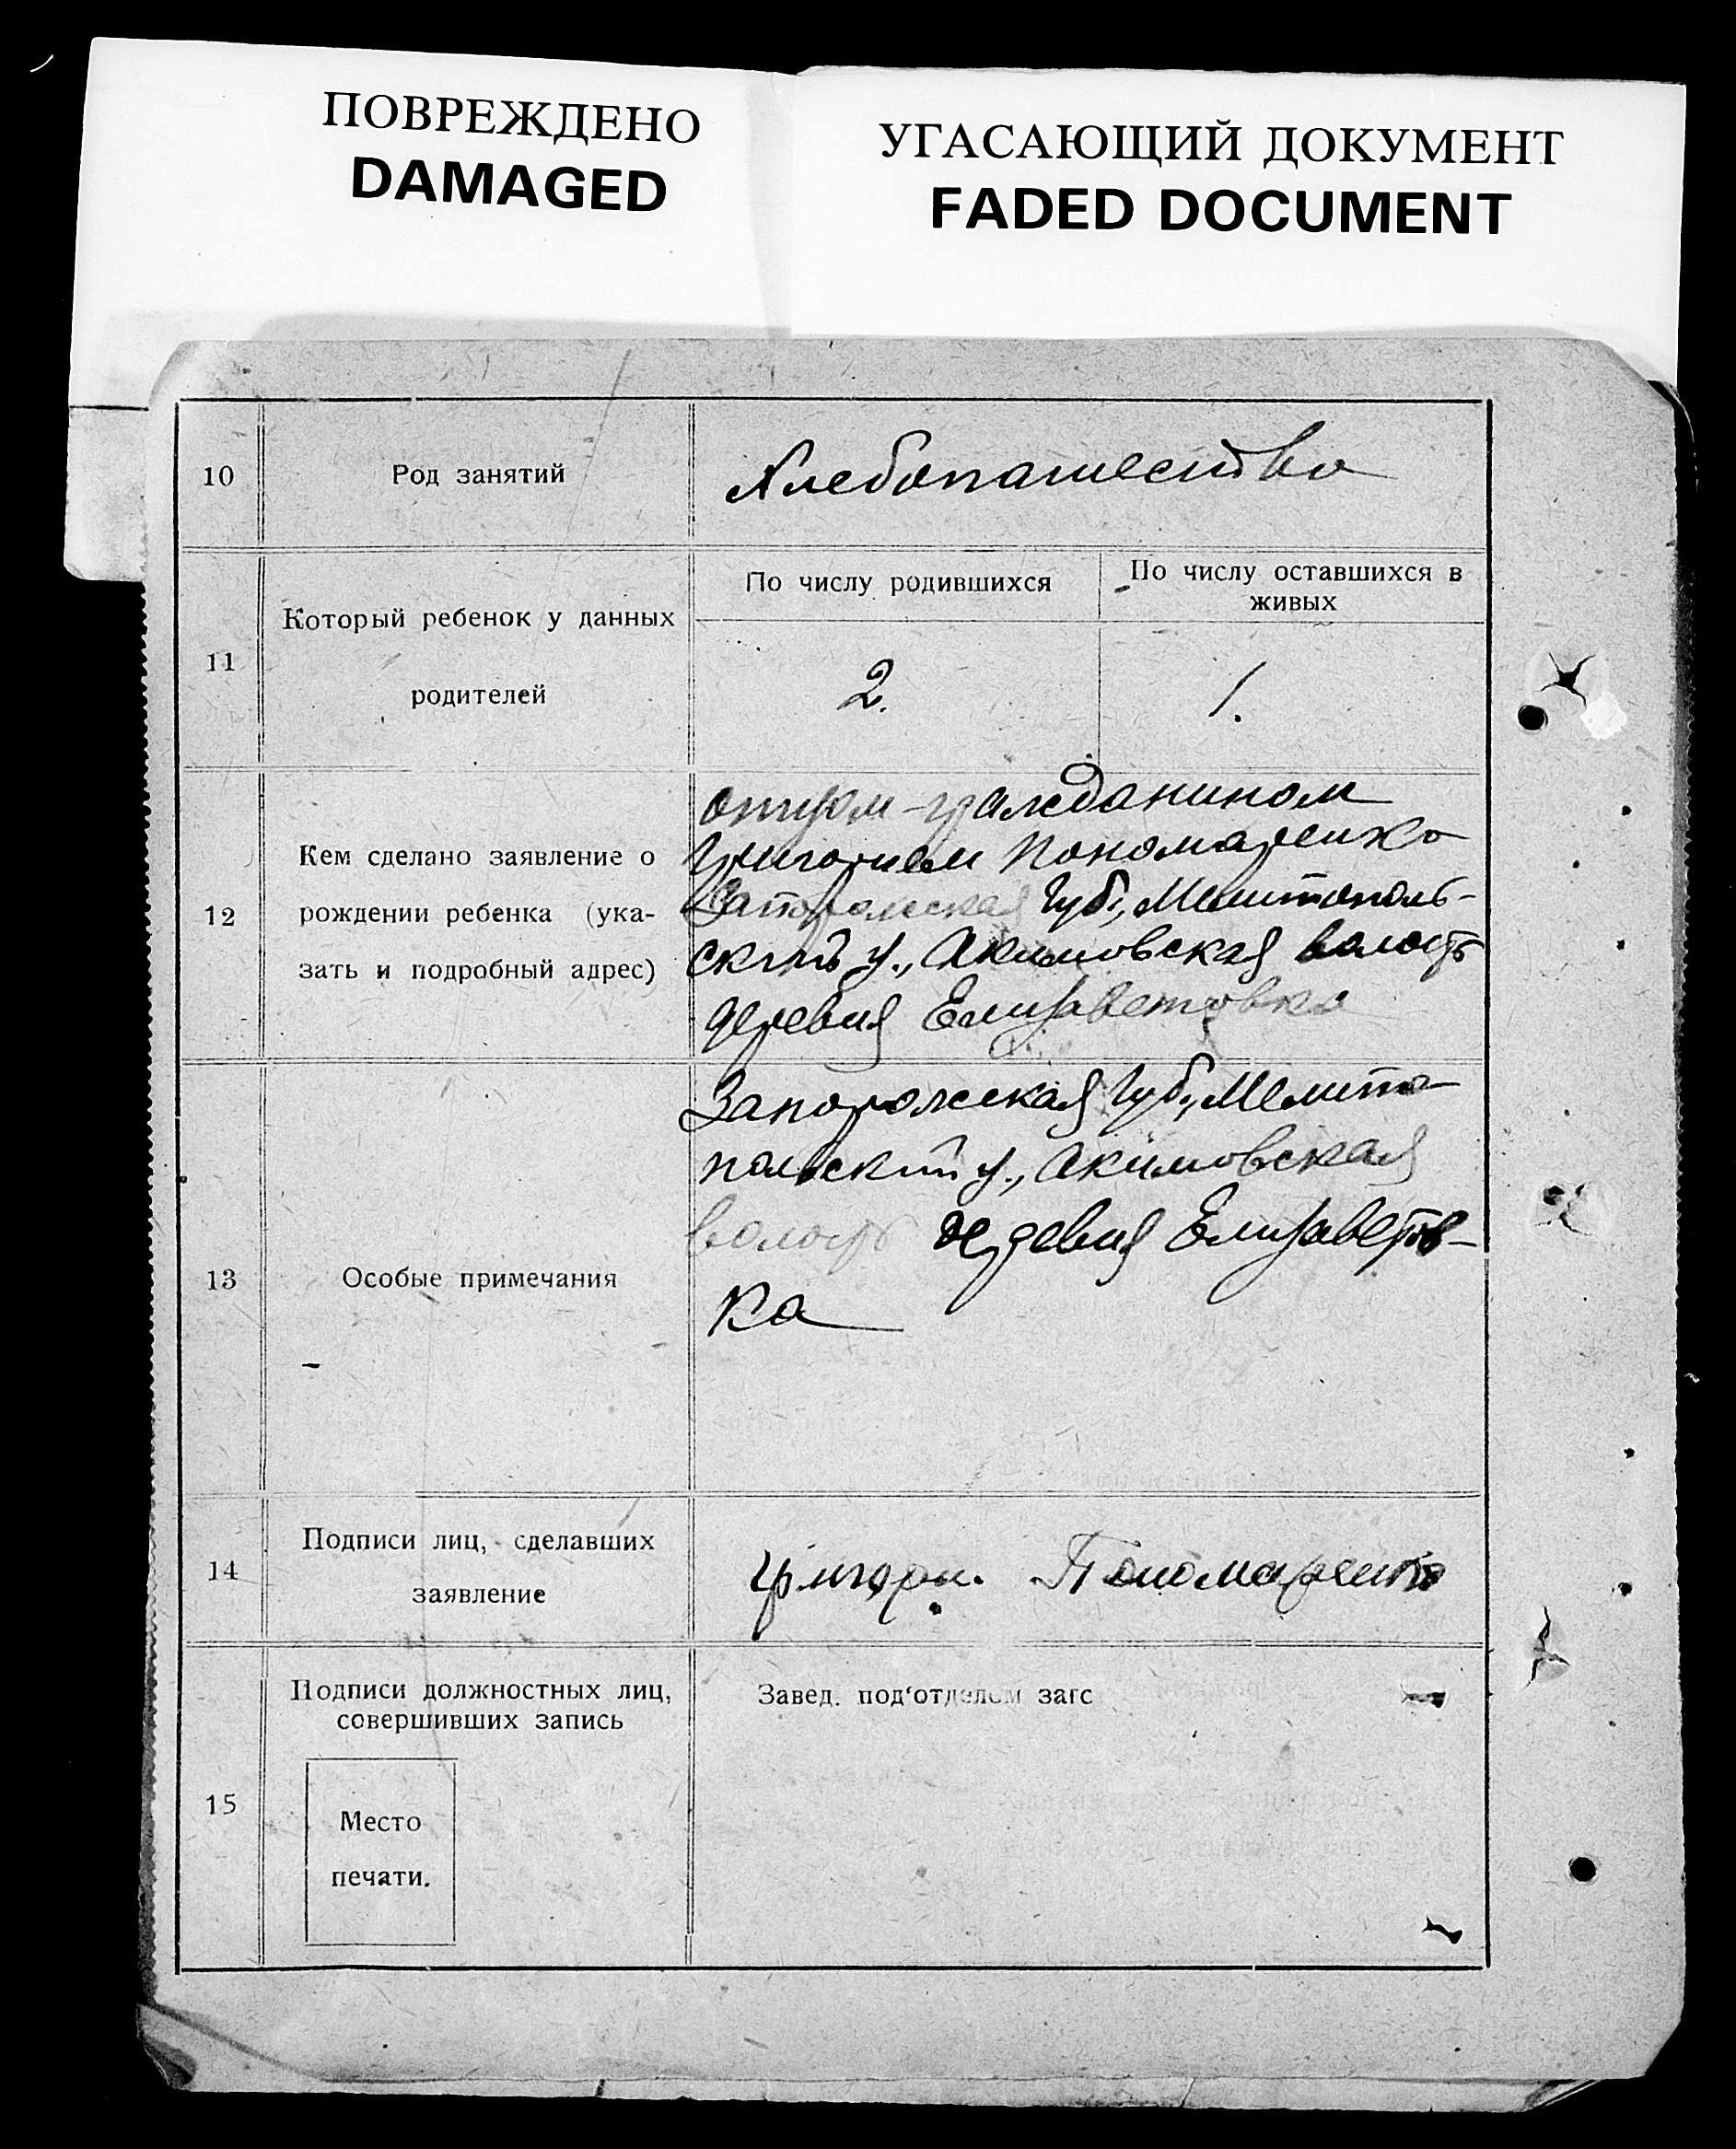 ПОВРЕЖДЕНО
DAMAGED
УГАСАЮЩИЙ ДОКУМЕНТ
FADED DOCUMENT
10
Род занятий
Хлебопашество
11
Который ребенок у данных
родителей
По числу родившихся
По числу оставшихся в
живых
2.
1.
12
Кем сделано заявление о
рождении ребенка (ука-
зать и подробный адрес)
отцом - гражданином
Григорием Пономаренко
Запорожская Губ., Мелитополь-
ский у., Акимовская волость
деревня Елизаветовка
13
Особые примечания
Запорожская Губ., Мелито-
польский у., Акимовская
волость деревня Елизаветов-
ка
14
Подписи лиц, сделавших
заявление
Григори. Пономаренко
15
Подписи должностных лиц,
совершивших запись
Место
печати.
Завед. под'отделом загс